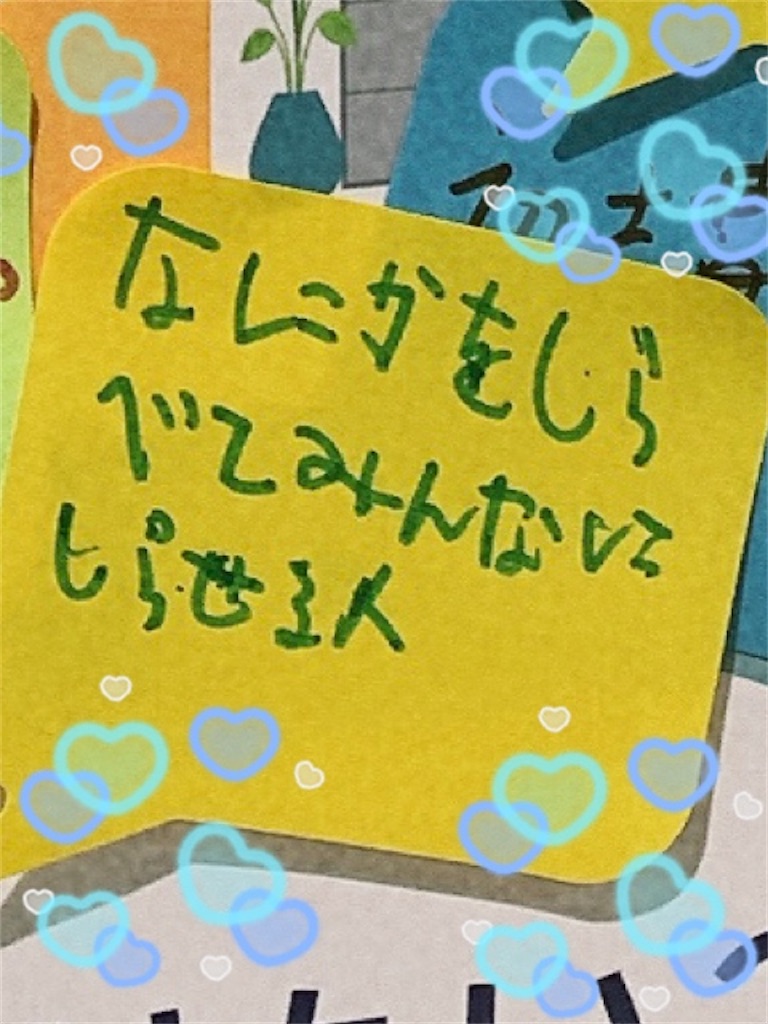 なにかをしら
べてみんなに
しらせる人